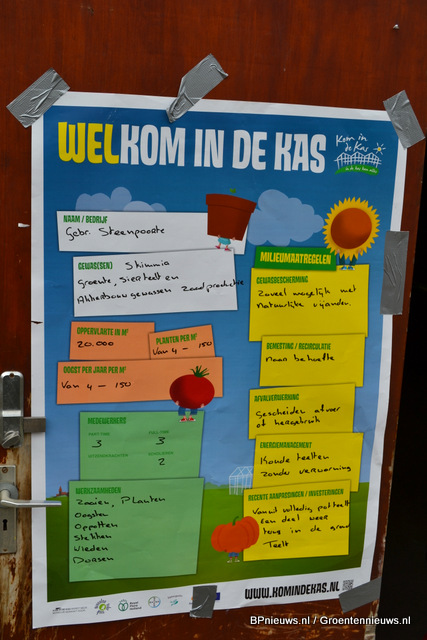 WELKOM IN DE KAS
Kom in
de Kas
NAAM / BEDRIJF
Gebr. Steenpoorte
GEWAS(SEN) Skimmia
Groente, Sierteelt en
Akkerbouwgewassen Zaadproductie
OPPERVLAKTE IN M²
20.000
PLANTEN PER M²
Van 4 - 150
OOGST PER JAAR PER M²
Van 4 - 150
MEDEWERKERS
PART-TIME
3
FULL-TIME
3
UITZENDKRACHTEN
SCHOLIEREN
2
WERKZAAMHEDEN
Zaaien, Planten
Oogsten
Oppotten
Stekken
Wieden
Dorsen
MILIEUMAATREGELEN
GEWASBESCHERMING
Zoveel mogelijk met
Natuurlijke vijanden.
BEMESTING / RECIRCULATIE
Naar behoefte
AFVALVERWERKING
Gescheiden afvoer
of hergebruik
ENERGIEMANAGEMENT
Koude teelten
zonder verwarming
RECENTE AANPASSINGEN / INVESTERINGEN
Vanuit volledig potteelt
een deel weer
terug in de grond
Teelt
WWW.KOMINDEKAS.NL
BPnieuws.nl / Groentennieuws.nl